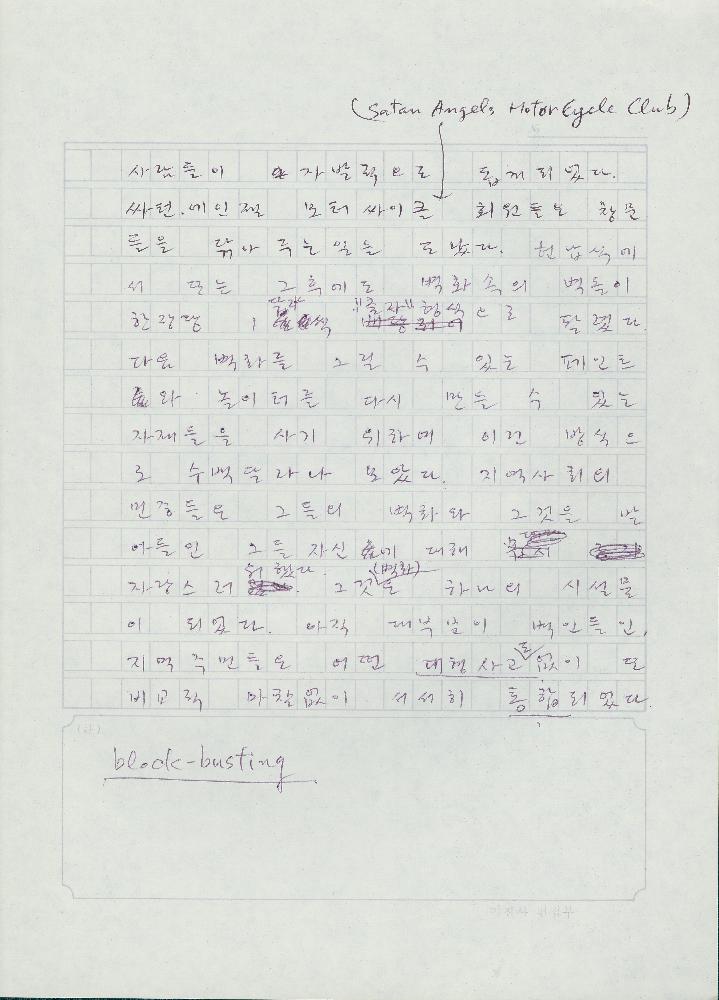 (Satan Angels MotorCycle Club)
사람들이 자발적으로 돕게 되었다.
싸턴.에인절 모터 싸이클 회원들은 창문
들을 닦아 주는 일을 도왔다. 헌납식에
서 또는 그 후에도 벽화속의 벽돌이
한장당 1 씩 "글자" 형식으로 팔렸다.
다음 벽화를 그릴 수 있는 페인트
와 놀이터를 다시 만들 수 있는
자재들을 사기 위하여 이런 방식으
로 수백달라나 모았다. 지역사회의
면경들은 그들의 벽화와 그것을 받
아들인 그들 자신에 대해
자랑스러워 했다. 그것은 (벽화) 하나의 시설물
이 되었다. 아직 대부분이 백인들인,
지역 주민들은 어떤 대형사고도 없이 또
비교적 마찰없이 서서히 통합되었다.
block-busting